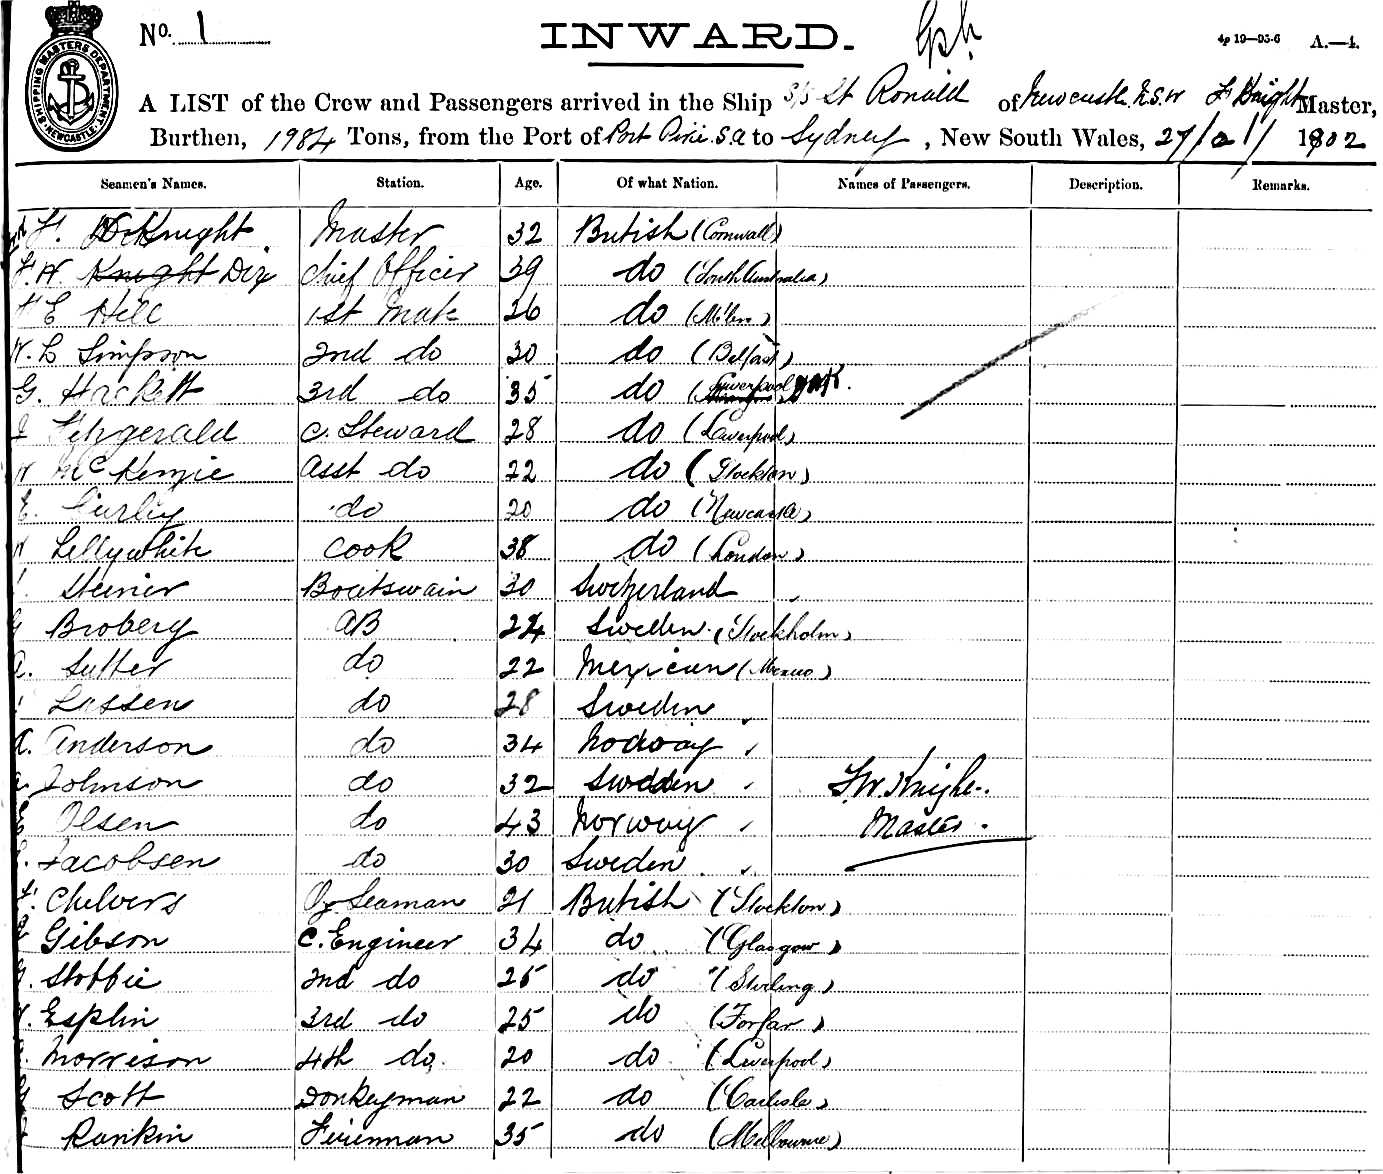 SHIPPING MASTERS DEPARTMENT NEWCASTLE
No. 1
INWARD.
4p 19—95-6 A.—4.
A LIST of the Crew and Passengers arrived in the Ship S/S St Ronald of Newcastle N.S.W F Knight Master,
Burthen, 1984 Tons, from the Port of Port Pirie S.A to Sydney, New South Wales, 27/2/ 1902
Seamen's Names. Station. Age. Of what Nation. Names of Passengers. Description. Remarks.
Knight Master 32 British (Cornwall)
F. W. Knight Dix Chief Officer 39 do (South Australia)
E Hill 1st Mate 26 do
W. L Simpson 2nd do 30 do (Belfast)
G. Hackett 3rd do 35 do (Liverpool)
Fitzgerald C. Steward 28 do (Liverpool)
W McKenzie Asst do 22 do (Stockton)
E. Gurley do 20 do (Newcastle)
W Lellywhite Cook 38 do (London)
Steiner Boatswain 30 Switzerland
Broberg AB 24 Sweden (Stockholm)
A. Sutter do 22 Mexican (Mexico)
Lassen do 28 Sweden
A. Anderson do 34 Norway
Johnson do 32 Sweden F.W. Knight
Olsen do 43 Norway Master
Jacobsen do 30 Sweden
Chelvers O/Seaman 21 British (Stockton)
Gibson C. Engineer 34 do (Glasgow)
Stobbie 2nd do 25 do (Stirling)
Esplin 3rd do 25 do (Forfar)
Morrison 4th do 20 do (Liverpool)
Scott Donkeyman 22 do (Carlisle)
Rankin Fireman 35 do (Melbourne)